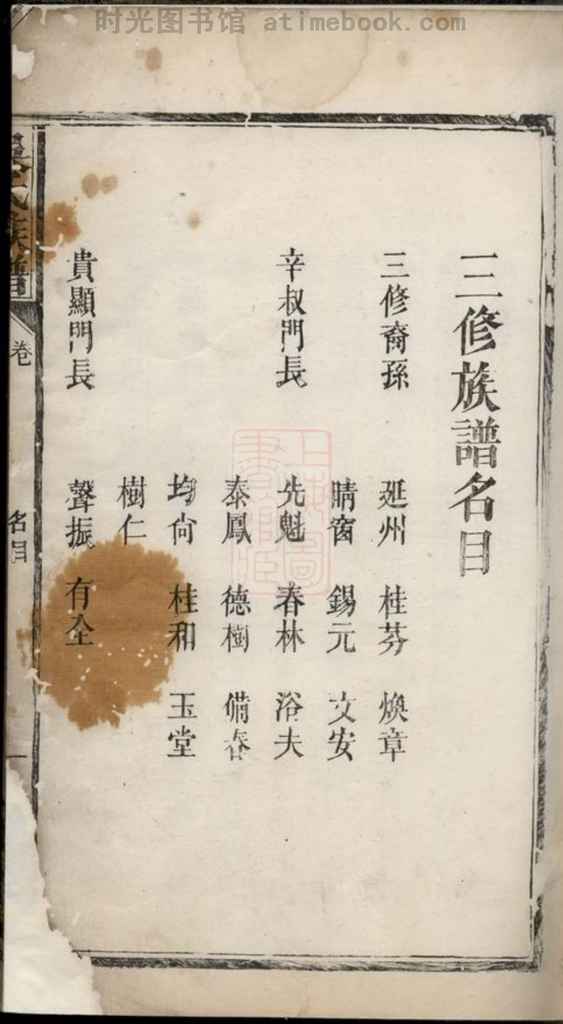 时光图书馆 atimebook.com
三修族譜名目
三修裔孫 延州 桂芬 煥章
晴窗 錫元 文安
辛叔門長 先魁 春林 浴夫
泰鳳 德樹 備春
均尙 桂和 玉堂
樹仁
貴顯門長 聲振 有全
氏族譜
卷
名目
一